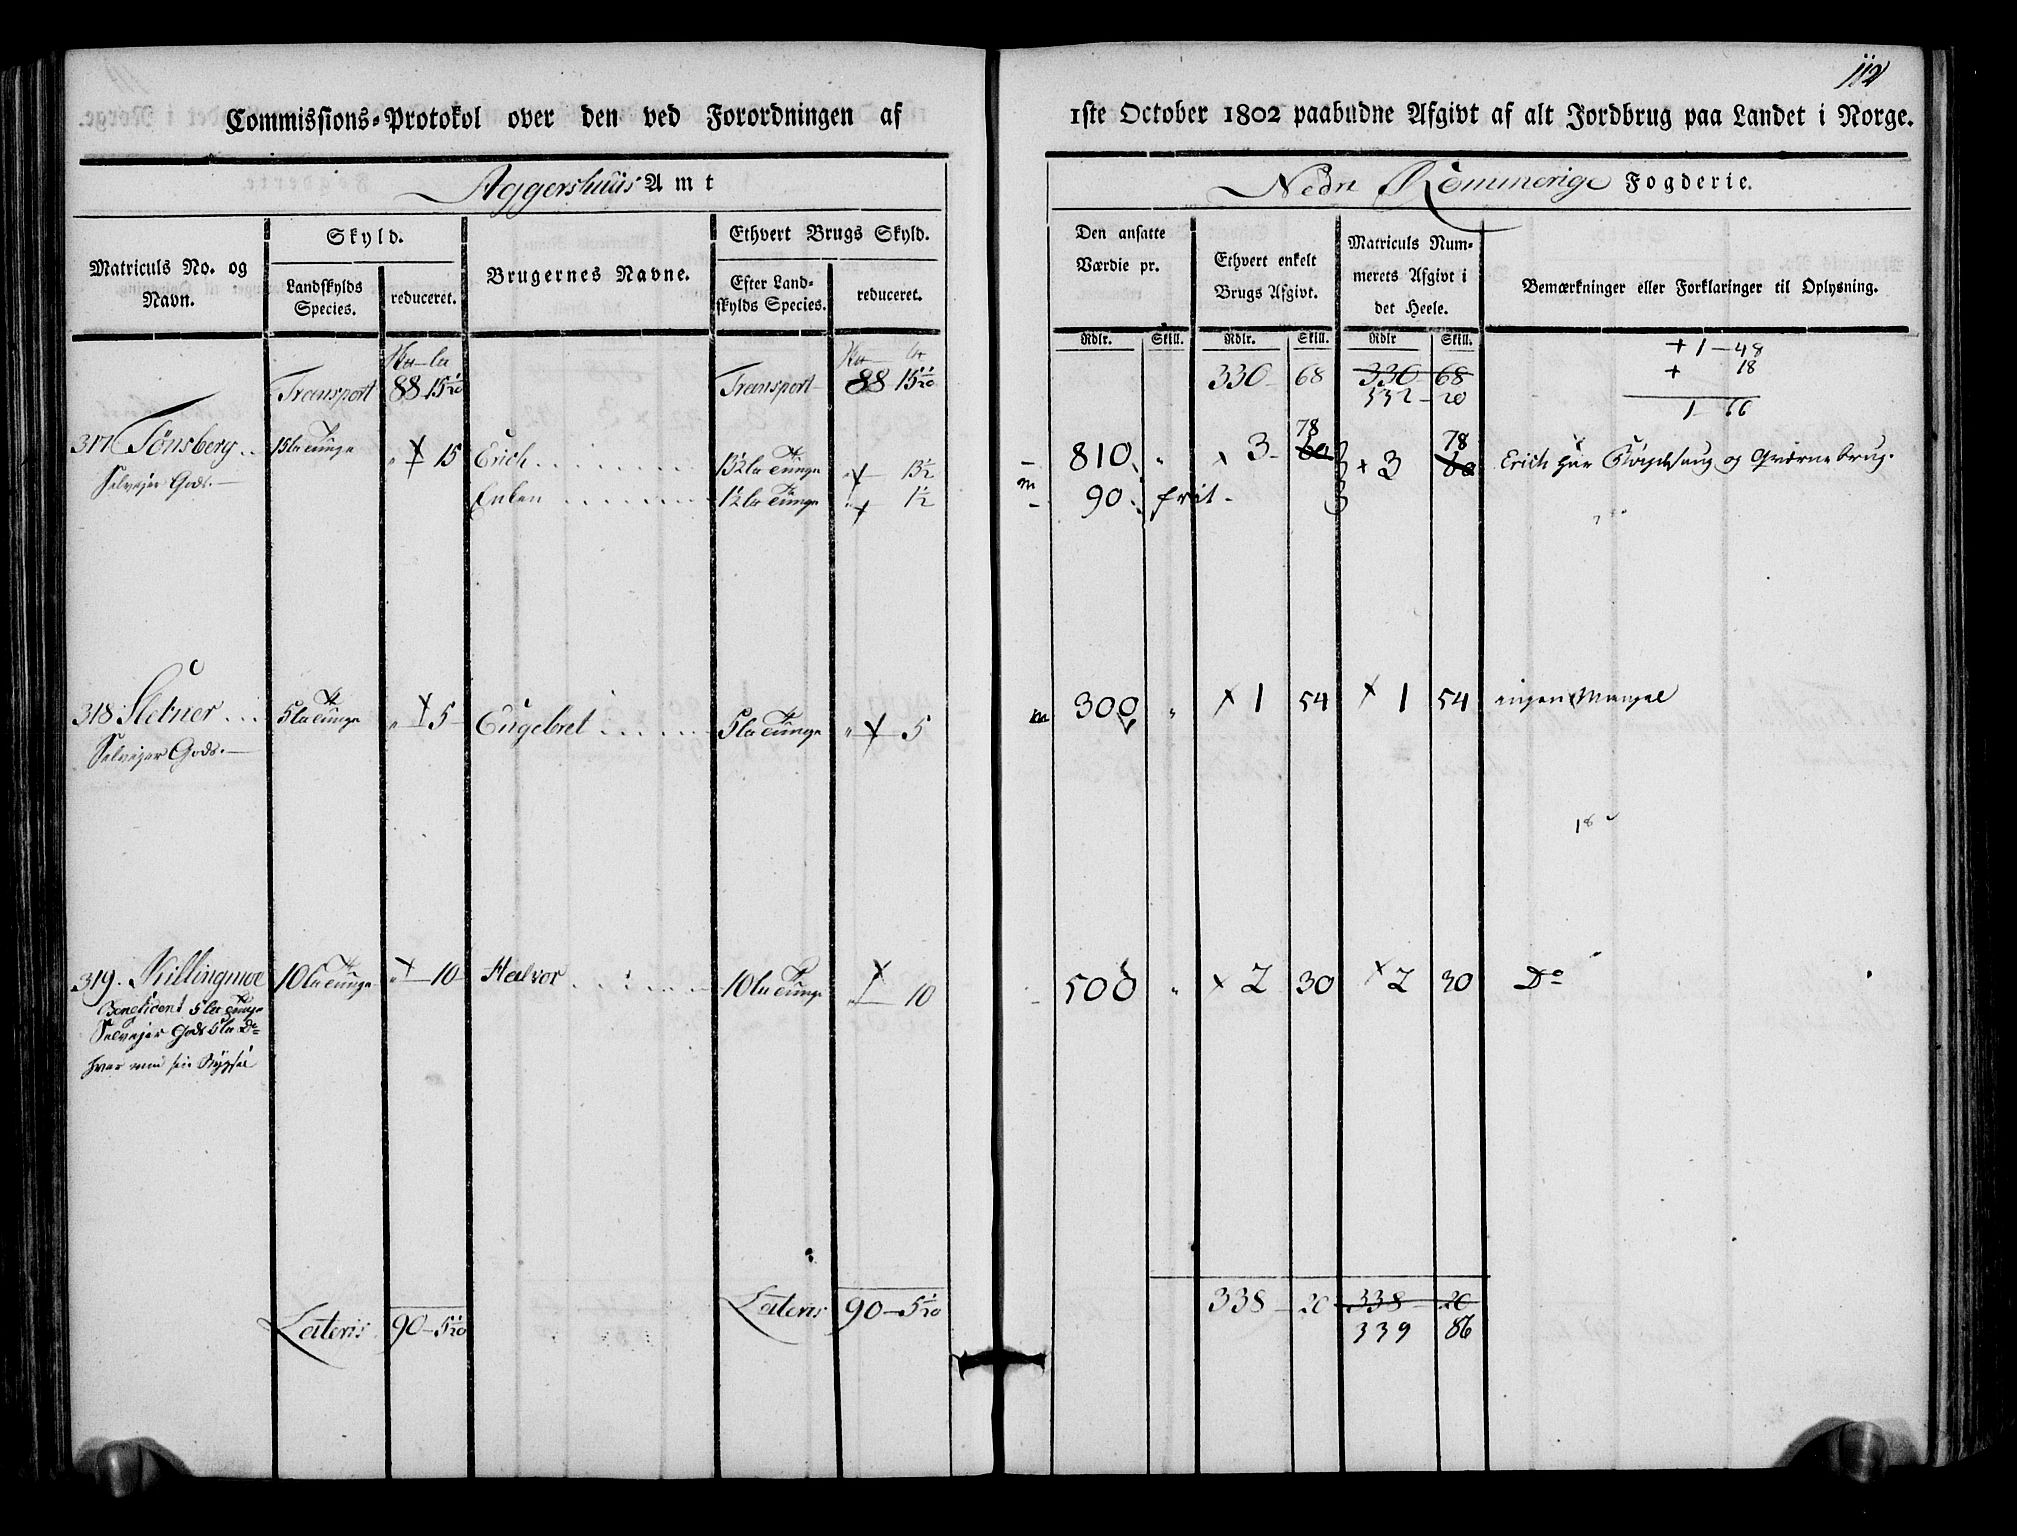 112
Commissions-Protokol over den ved Forordningen af
1ste October 1802 paabudne Afgivt af alt Jordbrug paa Landet i Norge.
Aggershuus Amt
Nedre Rommerige Fogderie.
Matriculs No. og Navn.
Skyld.
Landskylds Species.
reduceret.
Brugernes Navne.
Ethvert Brugs Skyld.
Efter Landskylds Species.
reduceret.
Den ansatte Værdie pr.
Ethvert enkelt Brugs Afgivt.
Matriculs Nummerets Afgivt i det Heele.
Bemærkninger eller Forklaringer til Oplysning.
Rdlr. Skill. Rdlr. Skill. Rdlr Skill.
Transport 88 15 1/20 Transport 88 15 1/20 330 68 330 68
332 20
+ 1 - 48
+ 18
1 66
317 Tønsberg 15 la Tunge " 15 Erich 13½ la Tunge " 13½ 810 " 3 78 3 78
Erich har Bøigdesaug og Qværnebrug.
Selvejer Gods.
Enken 1½ la Tunge " 1½ 90 frit
318 Sletner 5 la Tunge " 5 Engebret 5 la Tunge " 5 300 " 1 54 1 54 ingen Mangel
Selvejer Gods.
319. Killingmoe 10 la Tunge " 10 Halvor 10 la Tunge " 10 500 " 2 30 2 30 Do
Beneficert 5 la Tunge
Selvejer Gods 5 la Do
hver med sin Bygsel
Lateris 90 - 5 1/20 Lateris 90 - 5 1/20 338 20 338 20
339 86